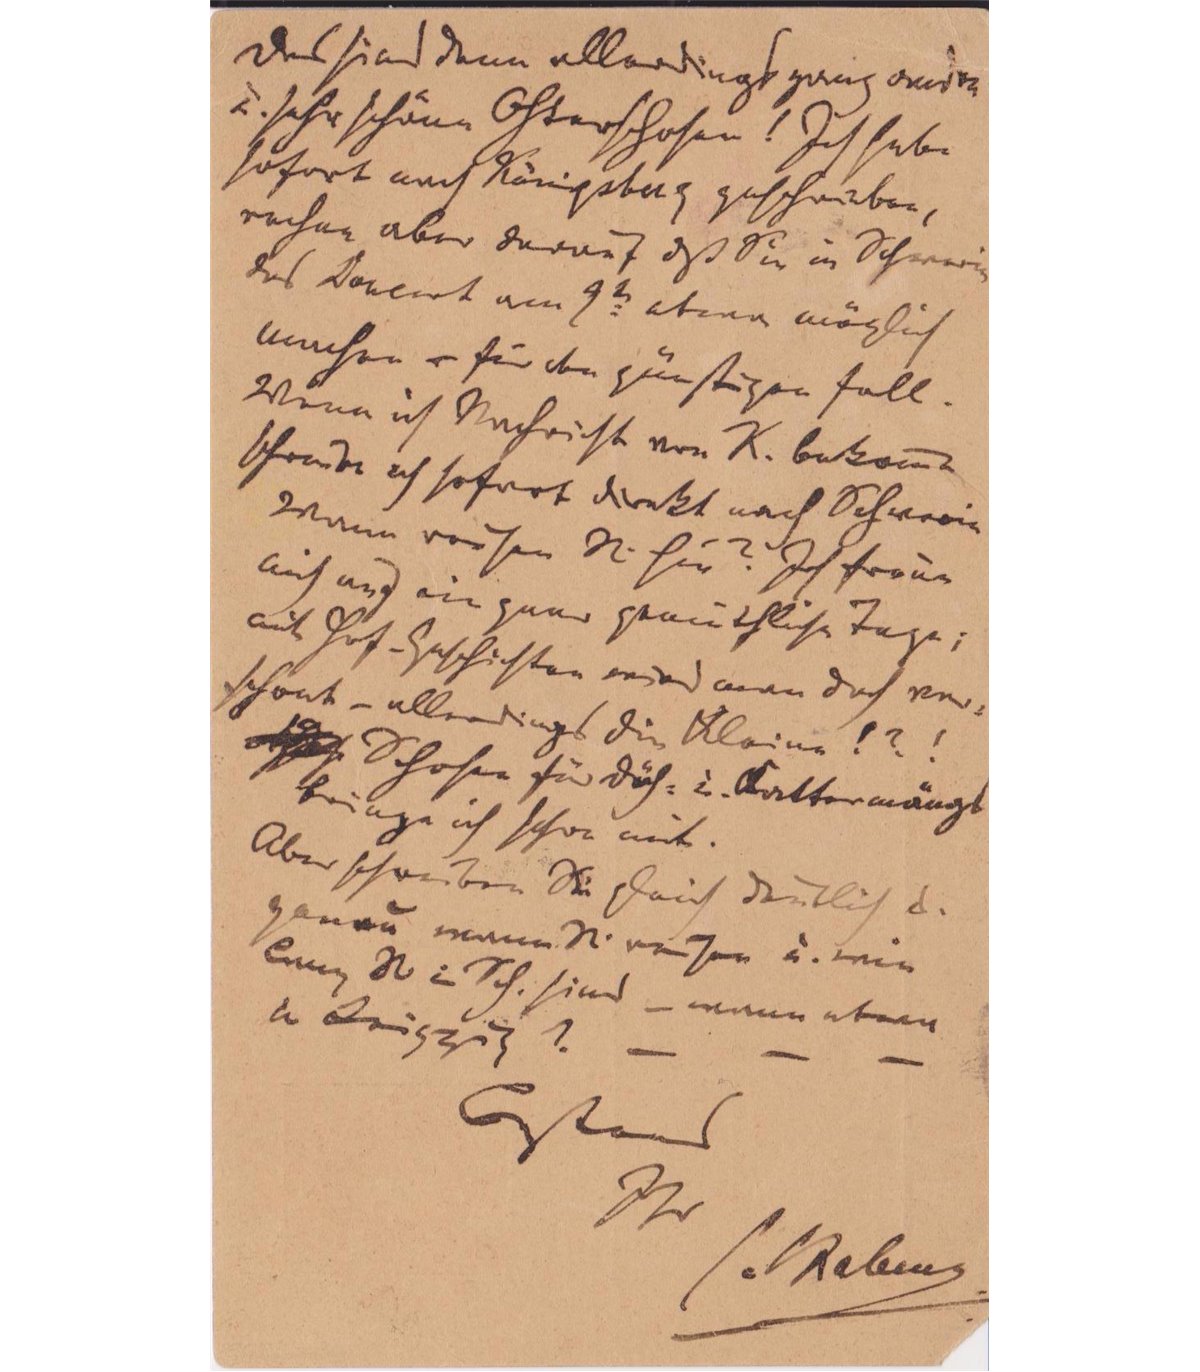 Das sind denn allerdings ganz andre
u. sehr schöne Osterschosen! Ich habe
sofort nach Königsberg geschrieben,
rechne aber darauf dß Sie in Schwerin
das Concert am 9t. etwa möglich
machen – für den günstigen Fall.
Wenn ich Nachricht von K. bekom̅e
schreibe ich sofort direkt nach Schwerin
Wann reisen S. hin? Ich freue
mich auf ein paar gemüthliche Tage;
mit Hof-Geschichten wird man doch ver-
schont – allerdings die Kleine!?!
Schosen für Düch- u.
bringe ich schon mit.
Aber schreiben Sie gleich deutlich u.
genau wann S. reisen u. wie
lang S. i. Sch. sind – wann etwa
in Leipzig? – – –
Ihr